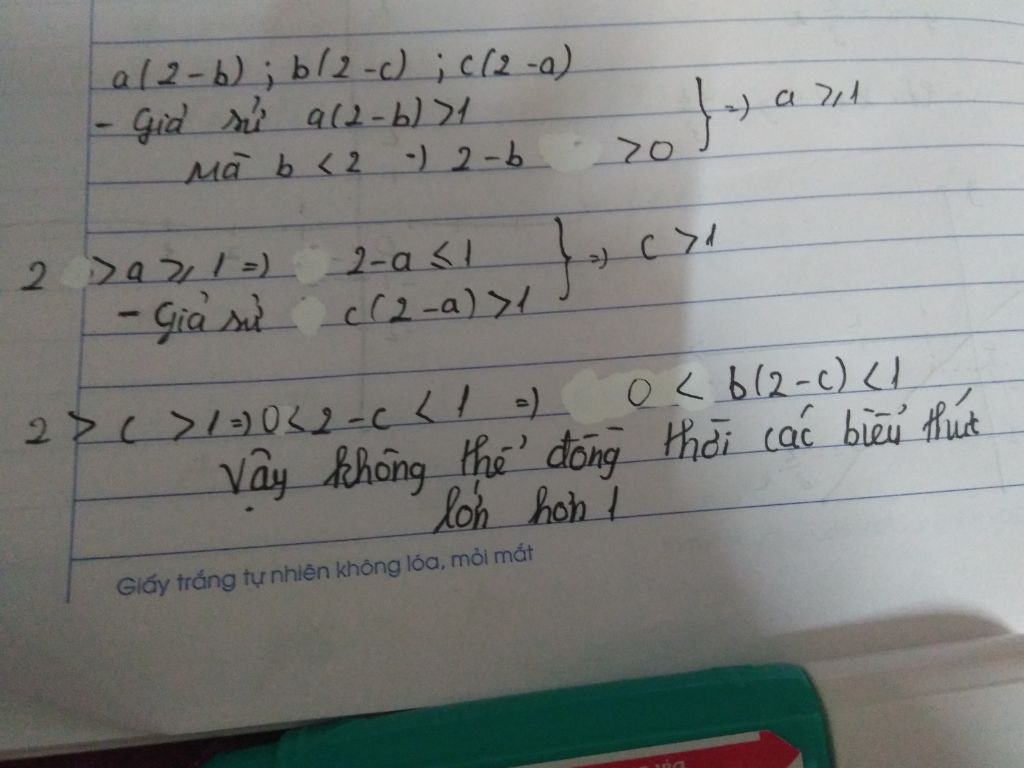 a(2-b) ; b(2-c) ; c(2-a)
- Giả sử a(2-b) >1
Mà b < 2 => 2-b >0 } => a ⩾ 1
2 > a ⩾ 1 => 2-a ⩽ 1
- Giả sử c(2-a) >1 } => c >1
2 > c >1 => 0<2-c < 1 => 0 < b(2-c) <1
Vậy không thể đồng thời các biểu thức
lớn hơn 1
Giấy trắng tự nhiên không lóa, mỏi mắt